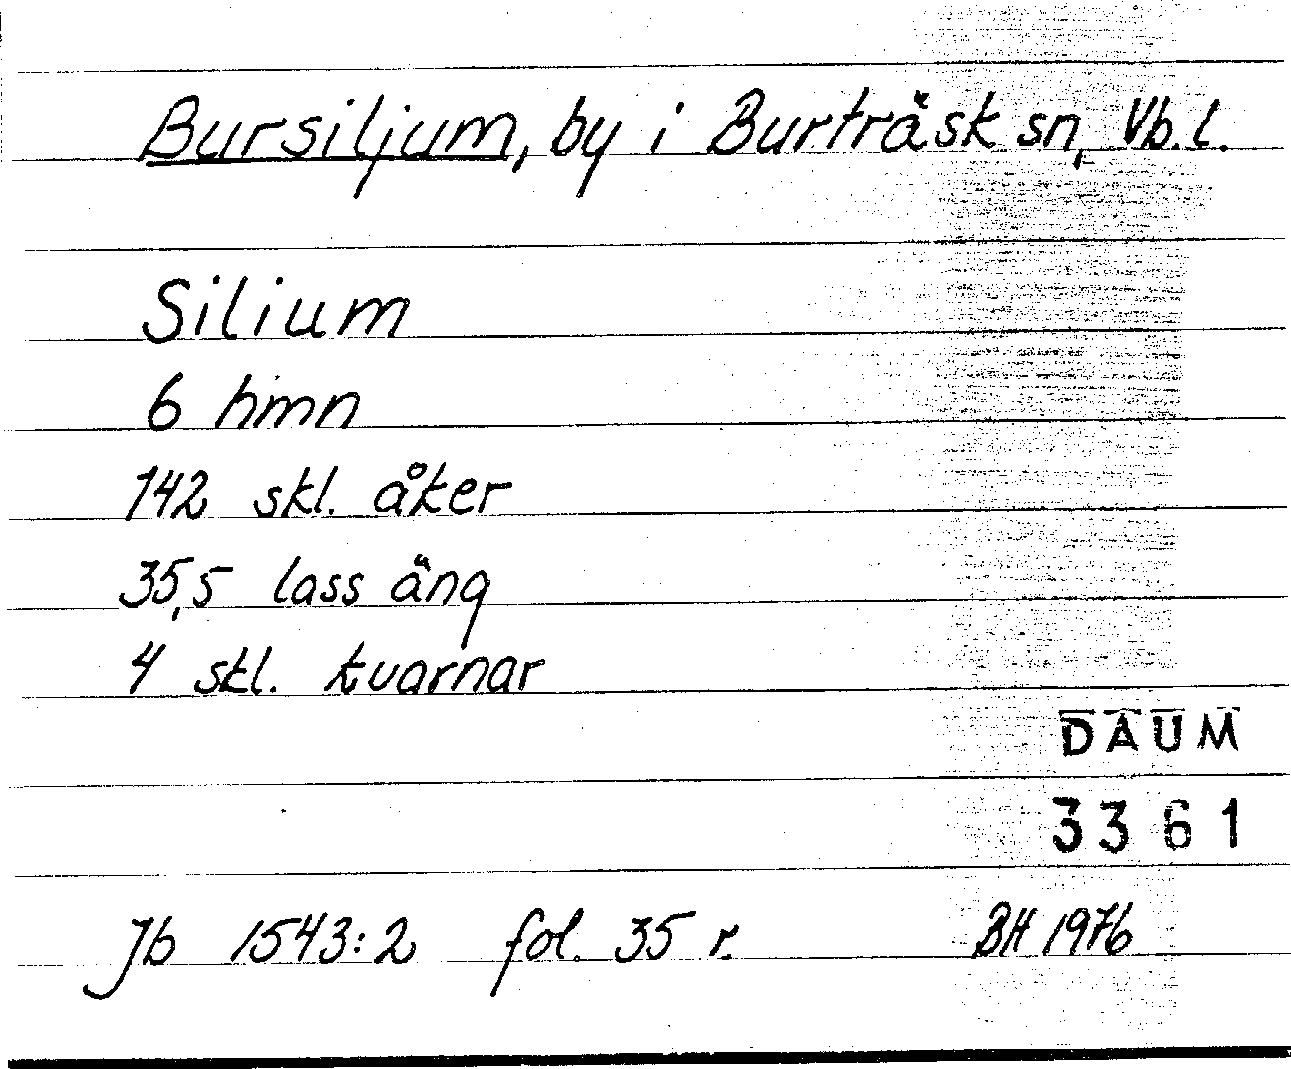 Bursiljum, by i Burträsk sn, Vb. l.
Silium
6 hmn
142 skl. åker
35,5 lass äng
4 skl. kvarnar
DAUM
3361
Jb 1543:2 fol. 35 r. BH 1976